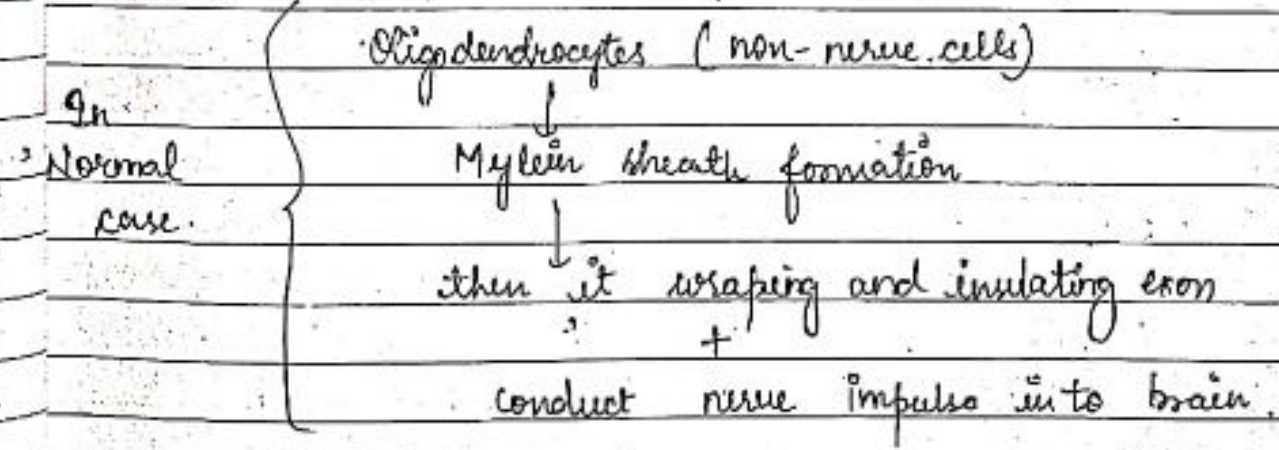 Oligodendrocytes (non-nerve cells)
↓
In
Normal
case.
Mylein sheath formation
↓
then it wraping and insulating exon
+
conduct nerve impulse in to brain.